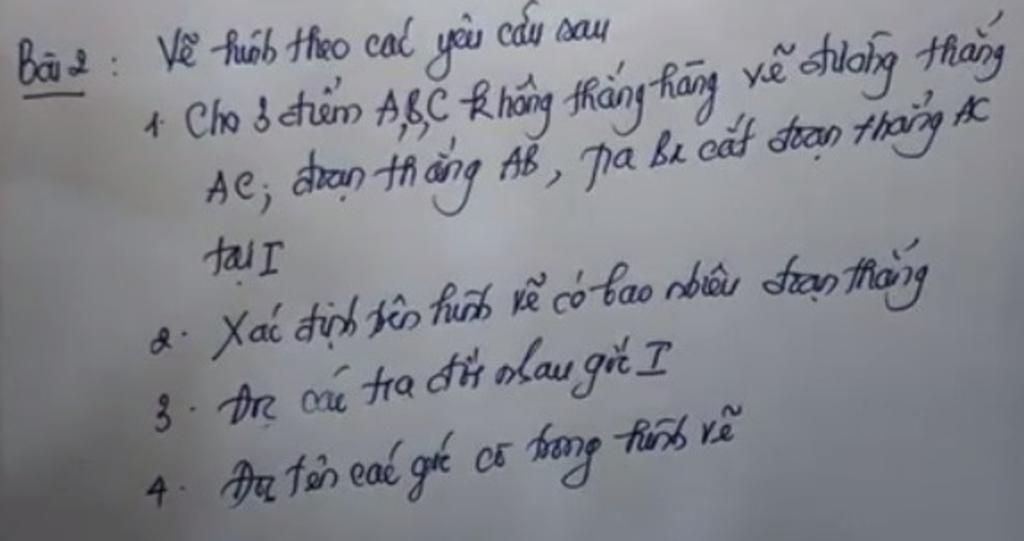 Bài 2: Vẽ hình theo các yêu cầu sau
1. Cho 3 điểm A,B,C không thẳng hàng vẽ đường thẳng
AC; đoạn thẳng AB, tia Bx cắt đoạn thẳng AC
tại I
2. Xác định trên hình vẽ có bao nhiêu đoạn thẳng
3. Đọc các tia đối nhau gốc I
4. Đọc tên các góc có trong hình vẽ